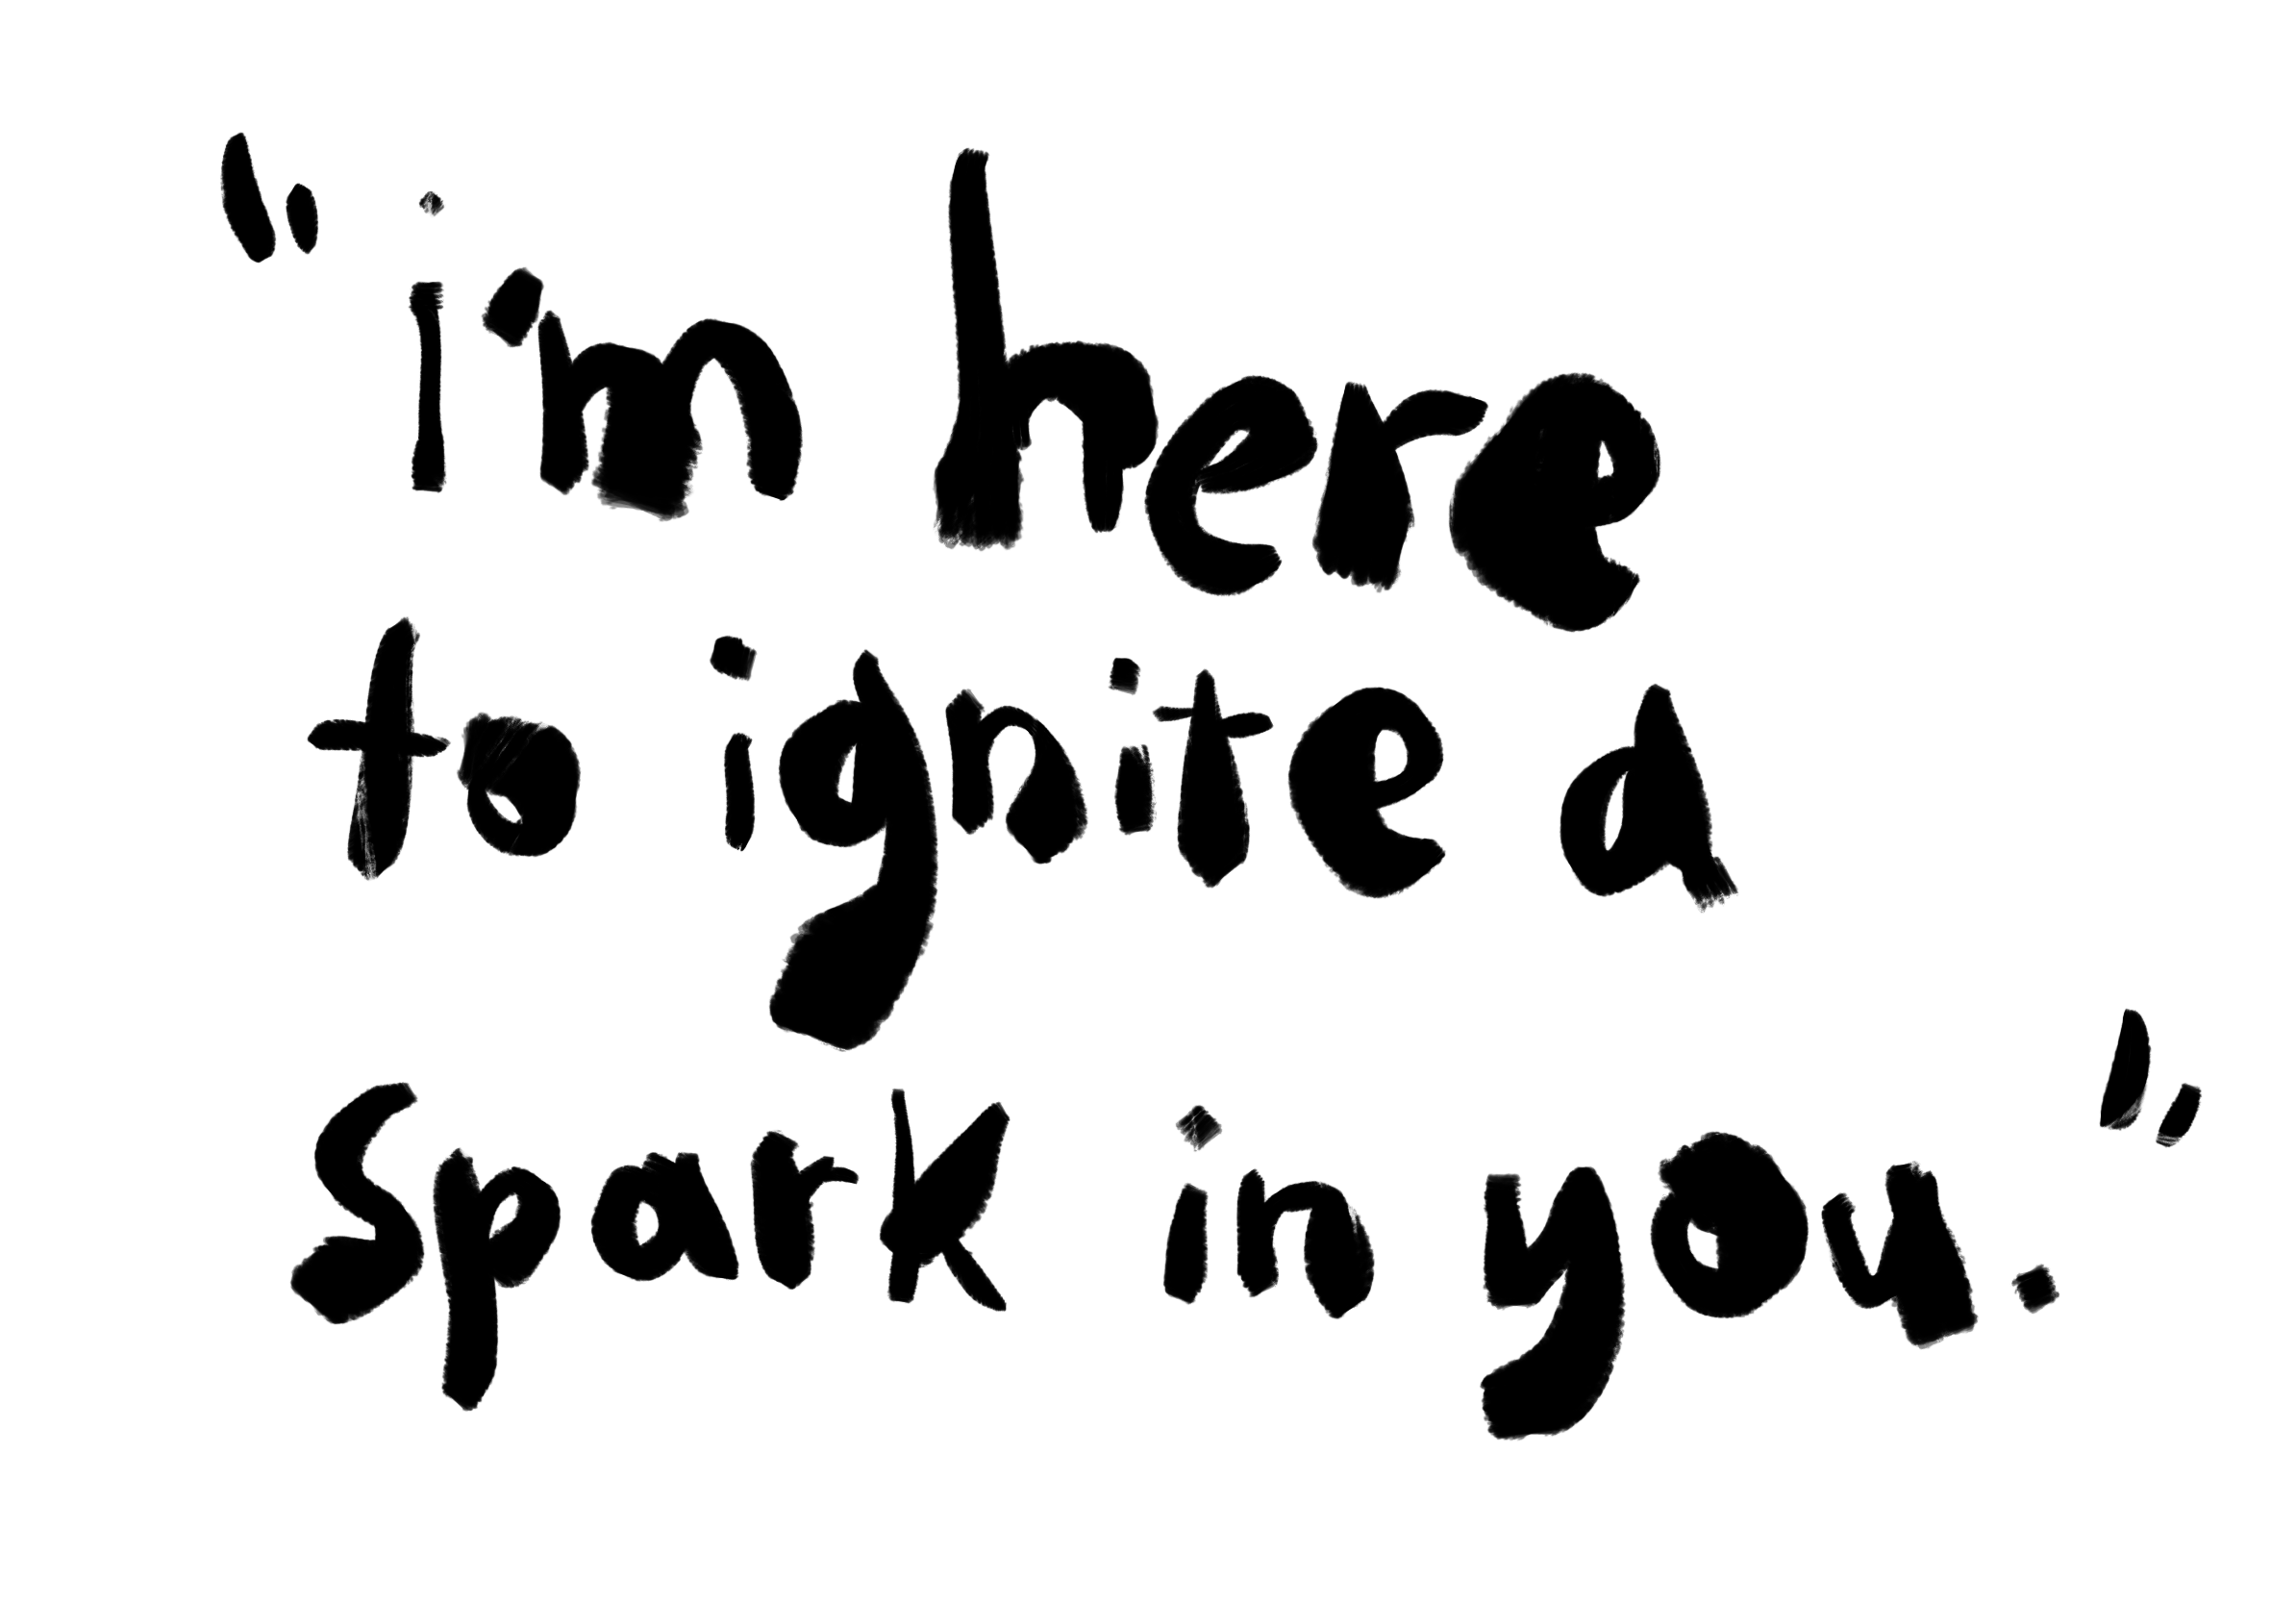 “i'm here
to ignite a
spark in you.”